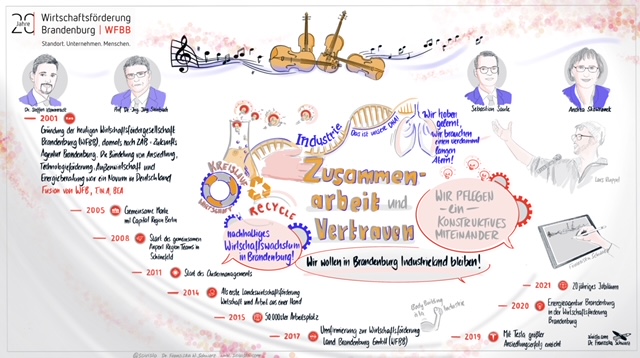 20 Jahre
Wirtschaftsförderung
Brandenburg | WFBB
Standort. Unternehmen. Menschen.
Dr. Steffen Kammradt
Prof. Dr.-Ing. Jörg Steinbach
Sebastian Saule
2001
Gründung der heutigen Wirtschaftsfördergesellschaft
Brandenburg (WFBB), damals noch ZAB - Zukunfts
Agentur Brandenburg. Die Bündelung von Ansiedlung,
Technologieförderung, Außenwirtschaft und
Energieberatung war ein Novum in Deutschland
Fusion von WFB, TINA, BEA
2005
Gemeinsame Marke
mit Capital Region Berlin
2008
Start des gemeinsamen
Airport Region Teams in
Schönefeld
2011
Start des Clustermanagements
2014
Als erste Landeswirtschaftsförderung
Wirtschaft und Arbeit aus einer Hand
2015
50 000ster Arbeitsplatz
2017
Umfirmierung zur Wirtschaftsförderung
Land Brandenburg GmbH (WFBB)
Industrie
Das ist unsere DNA!
Wir haben
gelernt,
wir brauchen
einen verdammt
langen
Atem!
KREISLAUF
WIRTSCHAFT
RECYCLE
Zusammen-
arbeit und
Vertrauen
nachhaltiges
Wirtschaftswachstum
in Brandenburg!
WIR PFLEGEN
- ein -
KONSTRUKTIVES
MITEINANDER
Wir wollen in Brandenburg Industrieland bleiben!
Body Building
Industrie
2021
20 jähriges Jubiläum
2020
Energieagentur Brandenburg
in der Wirtschaftsförderung
Brandenburg
2019
Mit Tesla größter
Ansiedlungserfolg erreicht